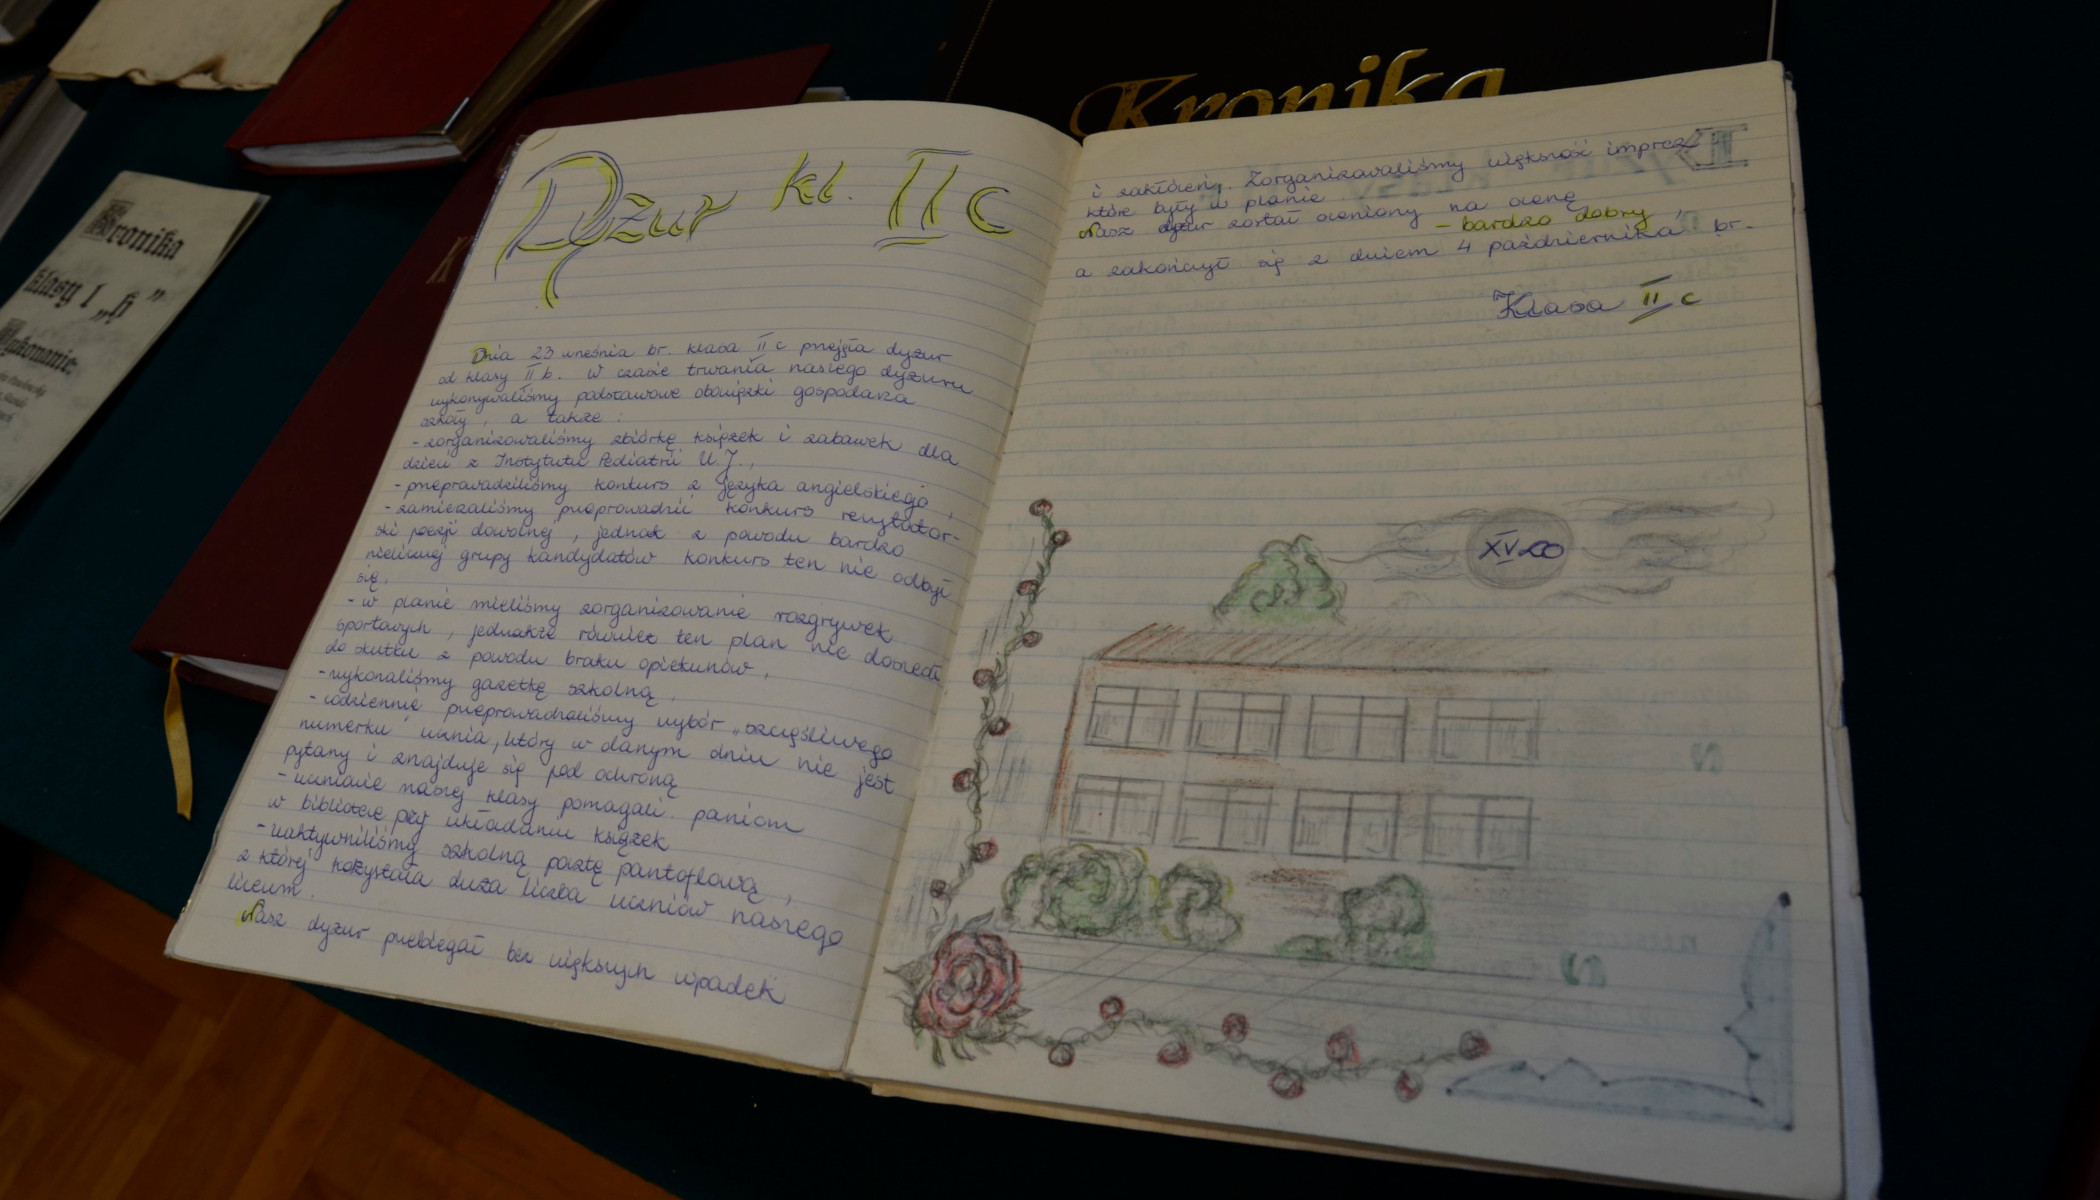 Kronika
Kronika
klasy I „h”
Wykonanie:
Dyżur kl. II c
Dnia 23 września br. klasa II c przejęła dyżur
od klasy II b. W czasie trwania naszego dyżuru
wykonywaliśmy podstawowe obowiązki gospodarza
szkoły, a także:
- zorganizowaliśmy zbiórkę książek i zabawek dla
dzieci z Instytutu Pediatrii U.J.,
- przeprowadziliśmy konkurs z języka angielskiego,
- zamierzaliśmy przeprowadzić konkurs recytator-
ski poezji dowolnej, jednak z powodu bardzo
nielicznej grupy kandydatów konkurs ten nie odbył
się.
- w planie mieliśmy zorganizowanie rozgrywek
sportowych, jednakże również ten plan nie doszedł
do skutku z powodu braku opiekunów,
- wykonaliśmy gazetkę szkolną,
- codziennie przeprowadzaliśmy wybór „szczęśliwego
numerku" ucznia, który w danym dniu nie jest
pytany i znajduje się pod ochroną
- uczniowie naszej klasy pomagali paniom
w bibliotece przy układaniu książek
- uaktywniliśmy szkolną pocztę pantoflową,
z której kożystała duża liczba uczniów naszego
liceum.
Nasz dyżur przebiegał bez większych wpadek
i zakłóceń. Zorganizowaliśmy większość imprez
które były w planie.
Nasz dyżur został oceniony na ocenę
- bardzo dobry,
a zakończył się z dniem 4 października br.
Klasa II c
XV LO